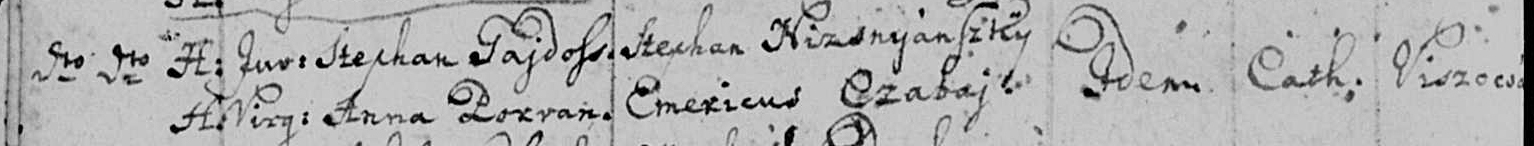 dto dto H: Juv: Stephan Gajdoss. Stephan Niznyánszky Idem Cath. Viszocsá
H. Virg: Anna Porvan. Emericus Czabaj.